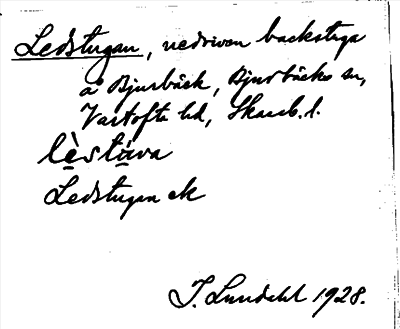 Ledstugan, nedriven backstuga
å Bjurbäck, Bjurbäcks sn,
Vartofta hd, Skarab. l.
lèstáva
Ledstugan ek
I. Lundahl 1928.